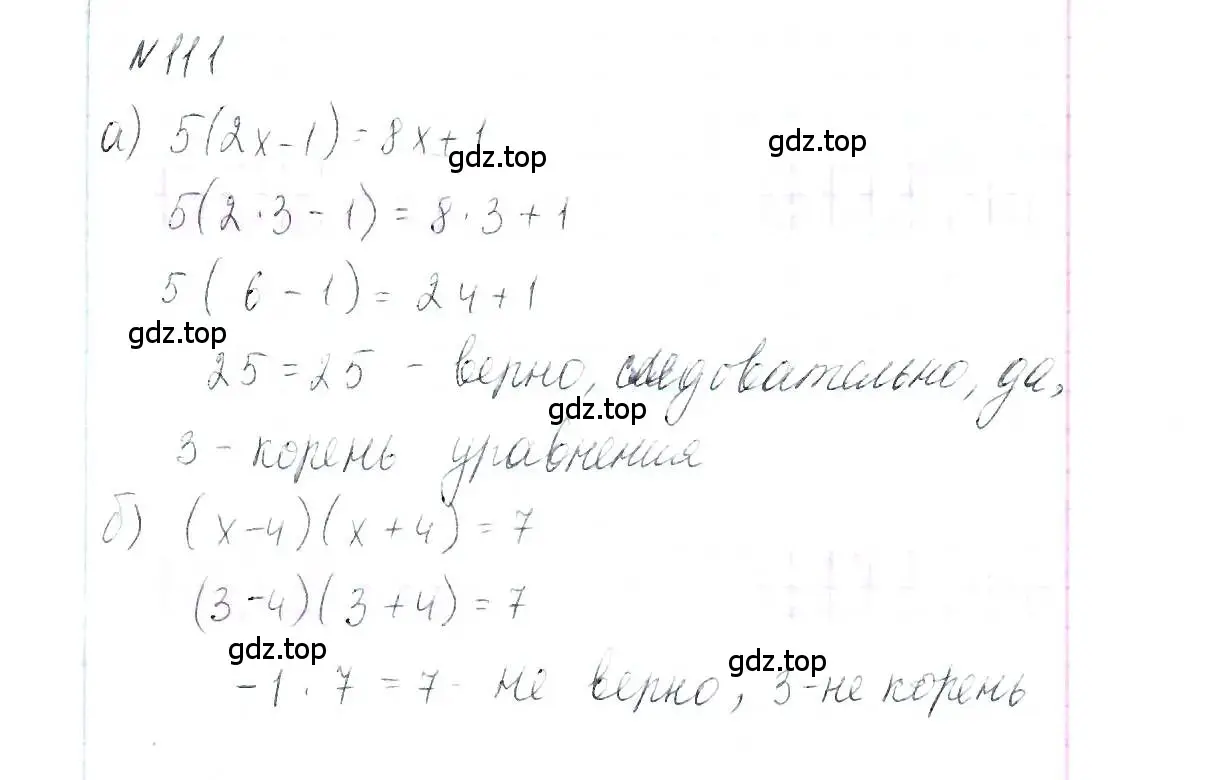 N 111
а) 5(2x-1)=8x+1
gdz.top
gdz.top
5(2·3-1)=8·3+1
5(6-1)=24+1
gdz.top
25=25 - верно, следовательно, да,
gdz.top
3-корень уравнения
б) (x-4)(x+4)=7
(3-4)(3+4)=7
gdz.top
gdz.top
-1·7=7- не верно, 3-не корень